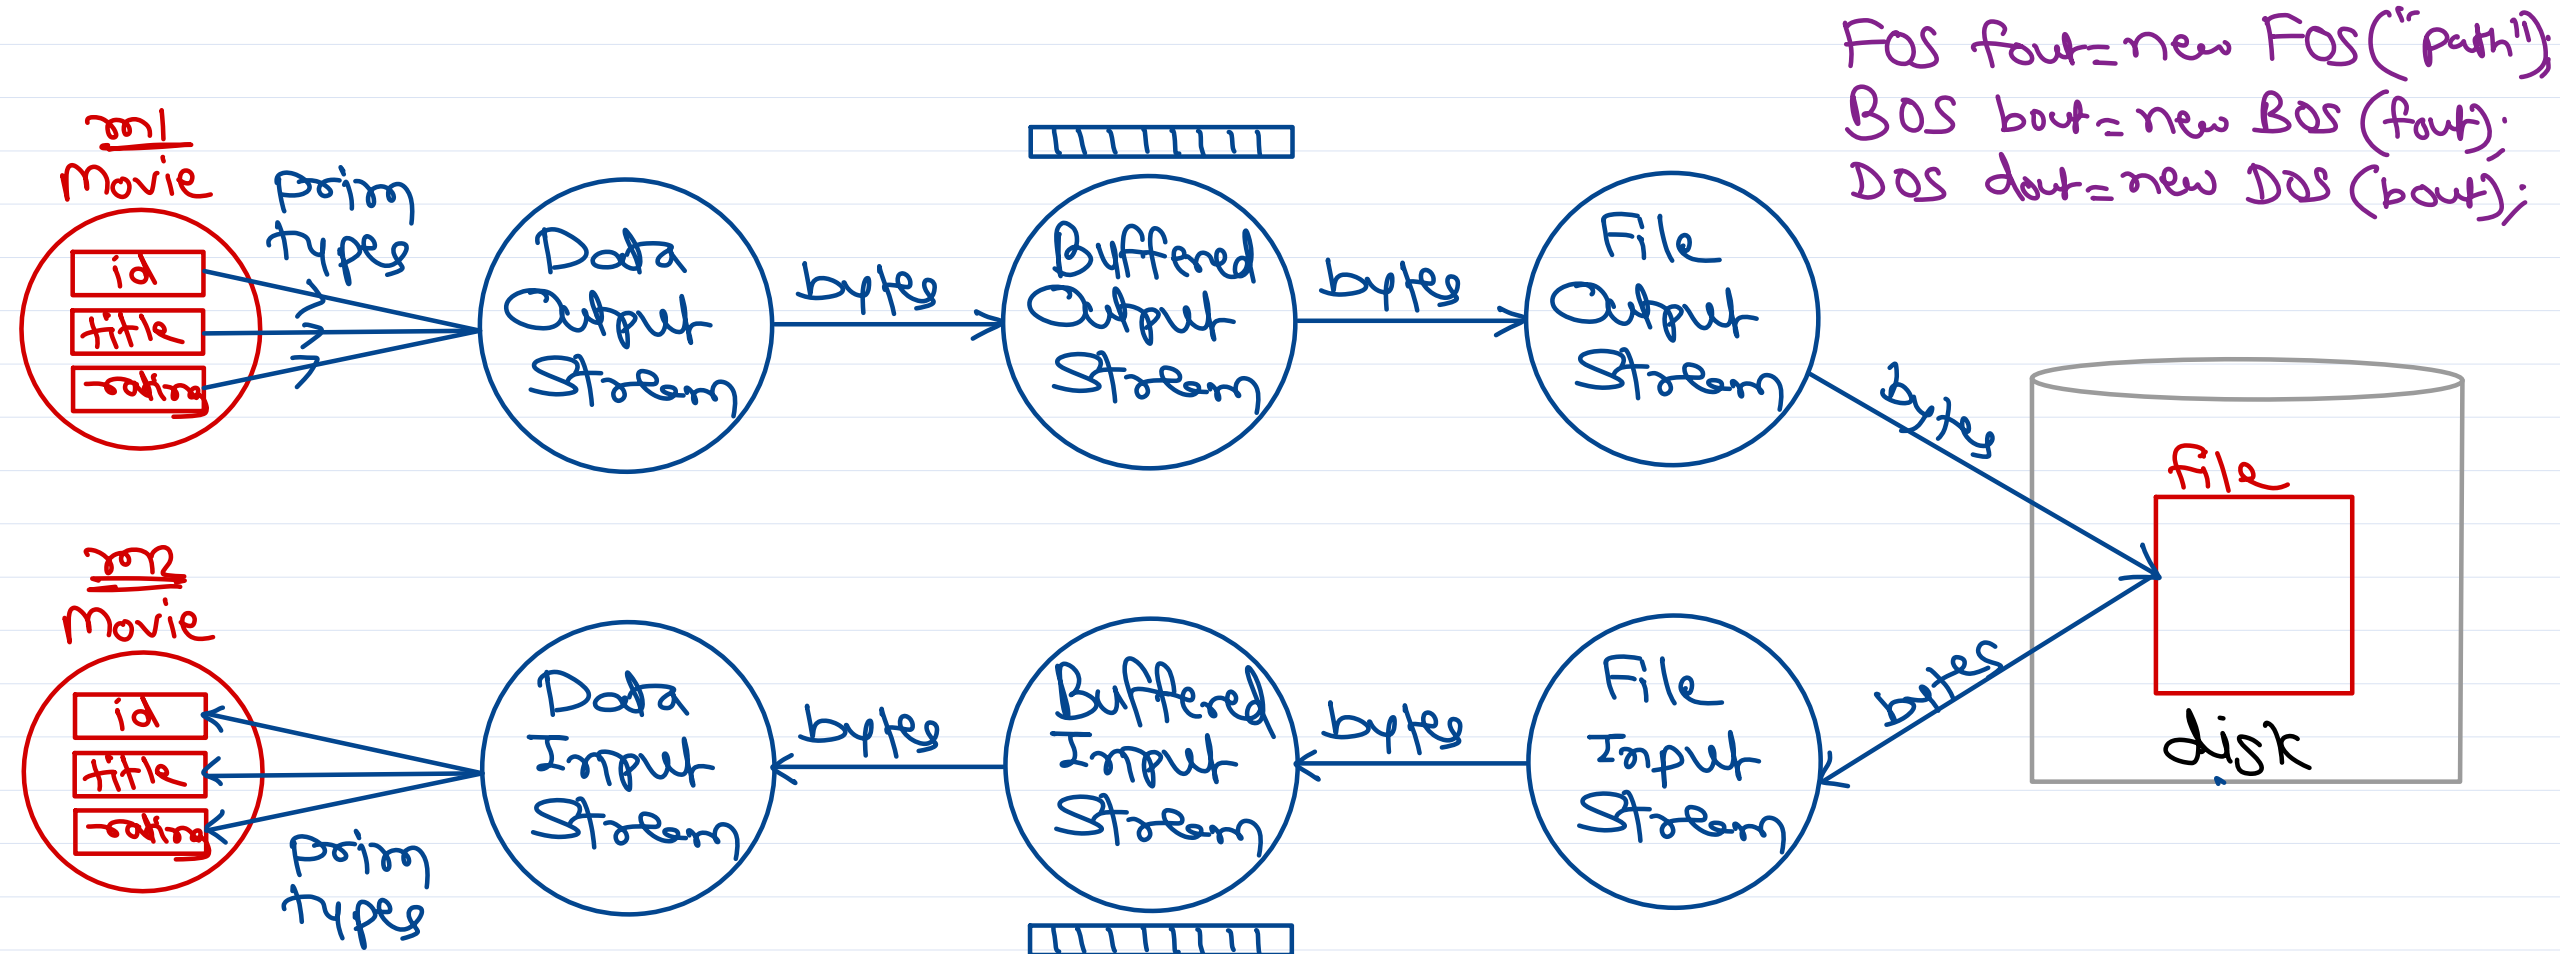 FOS fout = new FOS("path");
BOS bout = new BOS (fout);
DOS dout = new DOS (bout);
m1
Movie
id
title
rating
prim
types
Data
Output
Stream
bytes
Buffered
Output
Stream
bytes
File
Output
Stream
bytes
File
disk
m2
Movie
id
title
rating
prim
types
Data
Input
Stream
bytes
Buffered
Input
Stream
bytes
File
Input
Stream
bytes